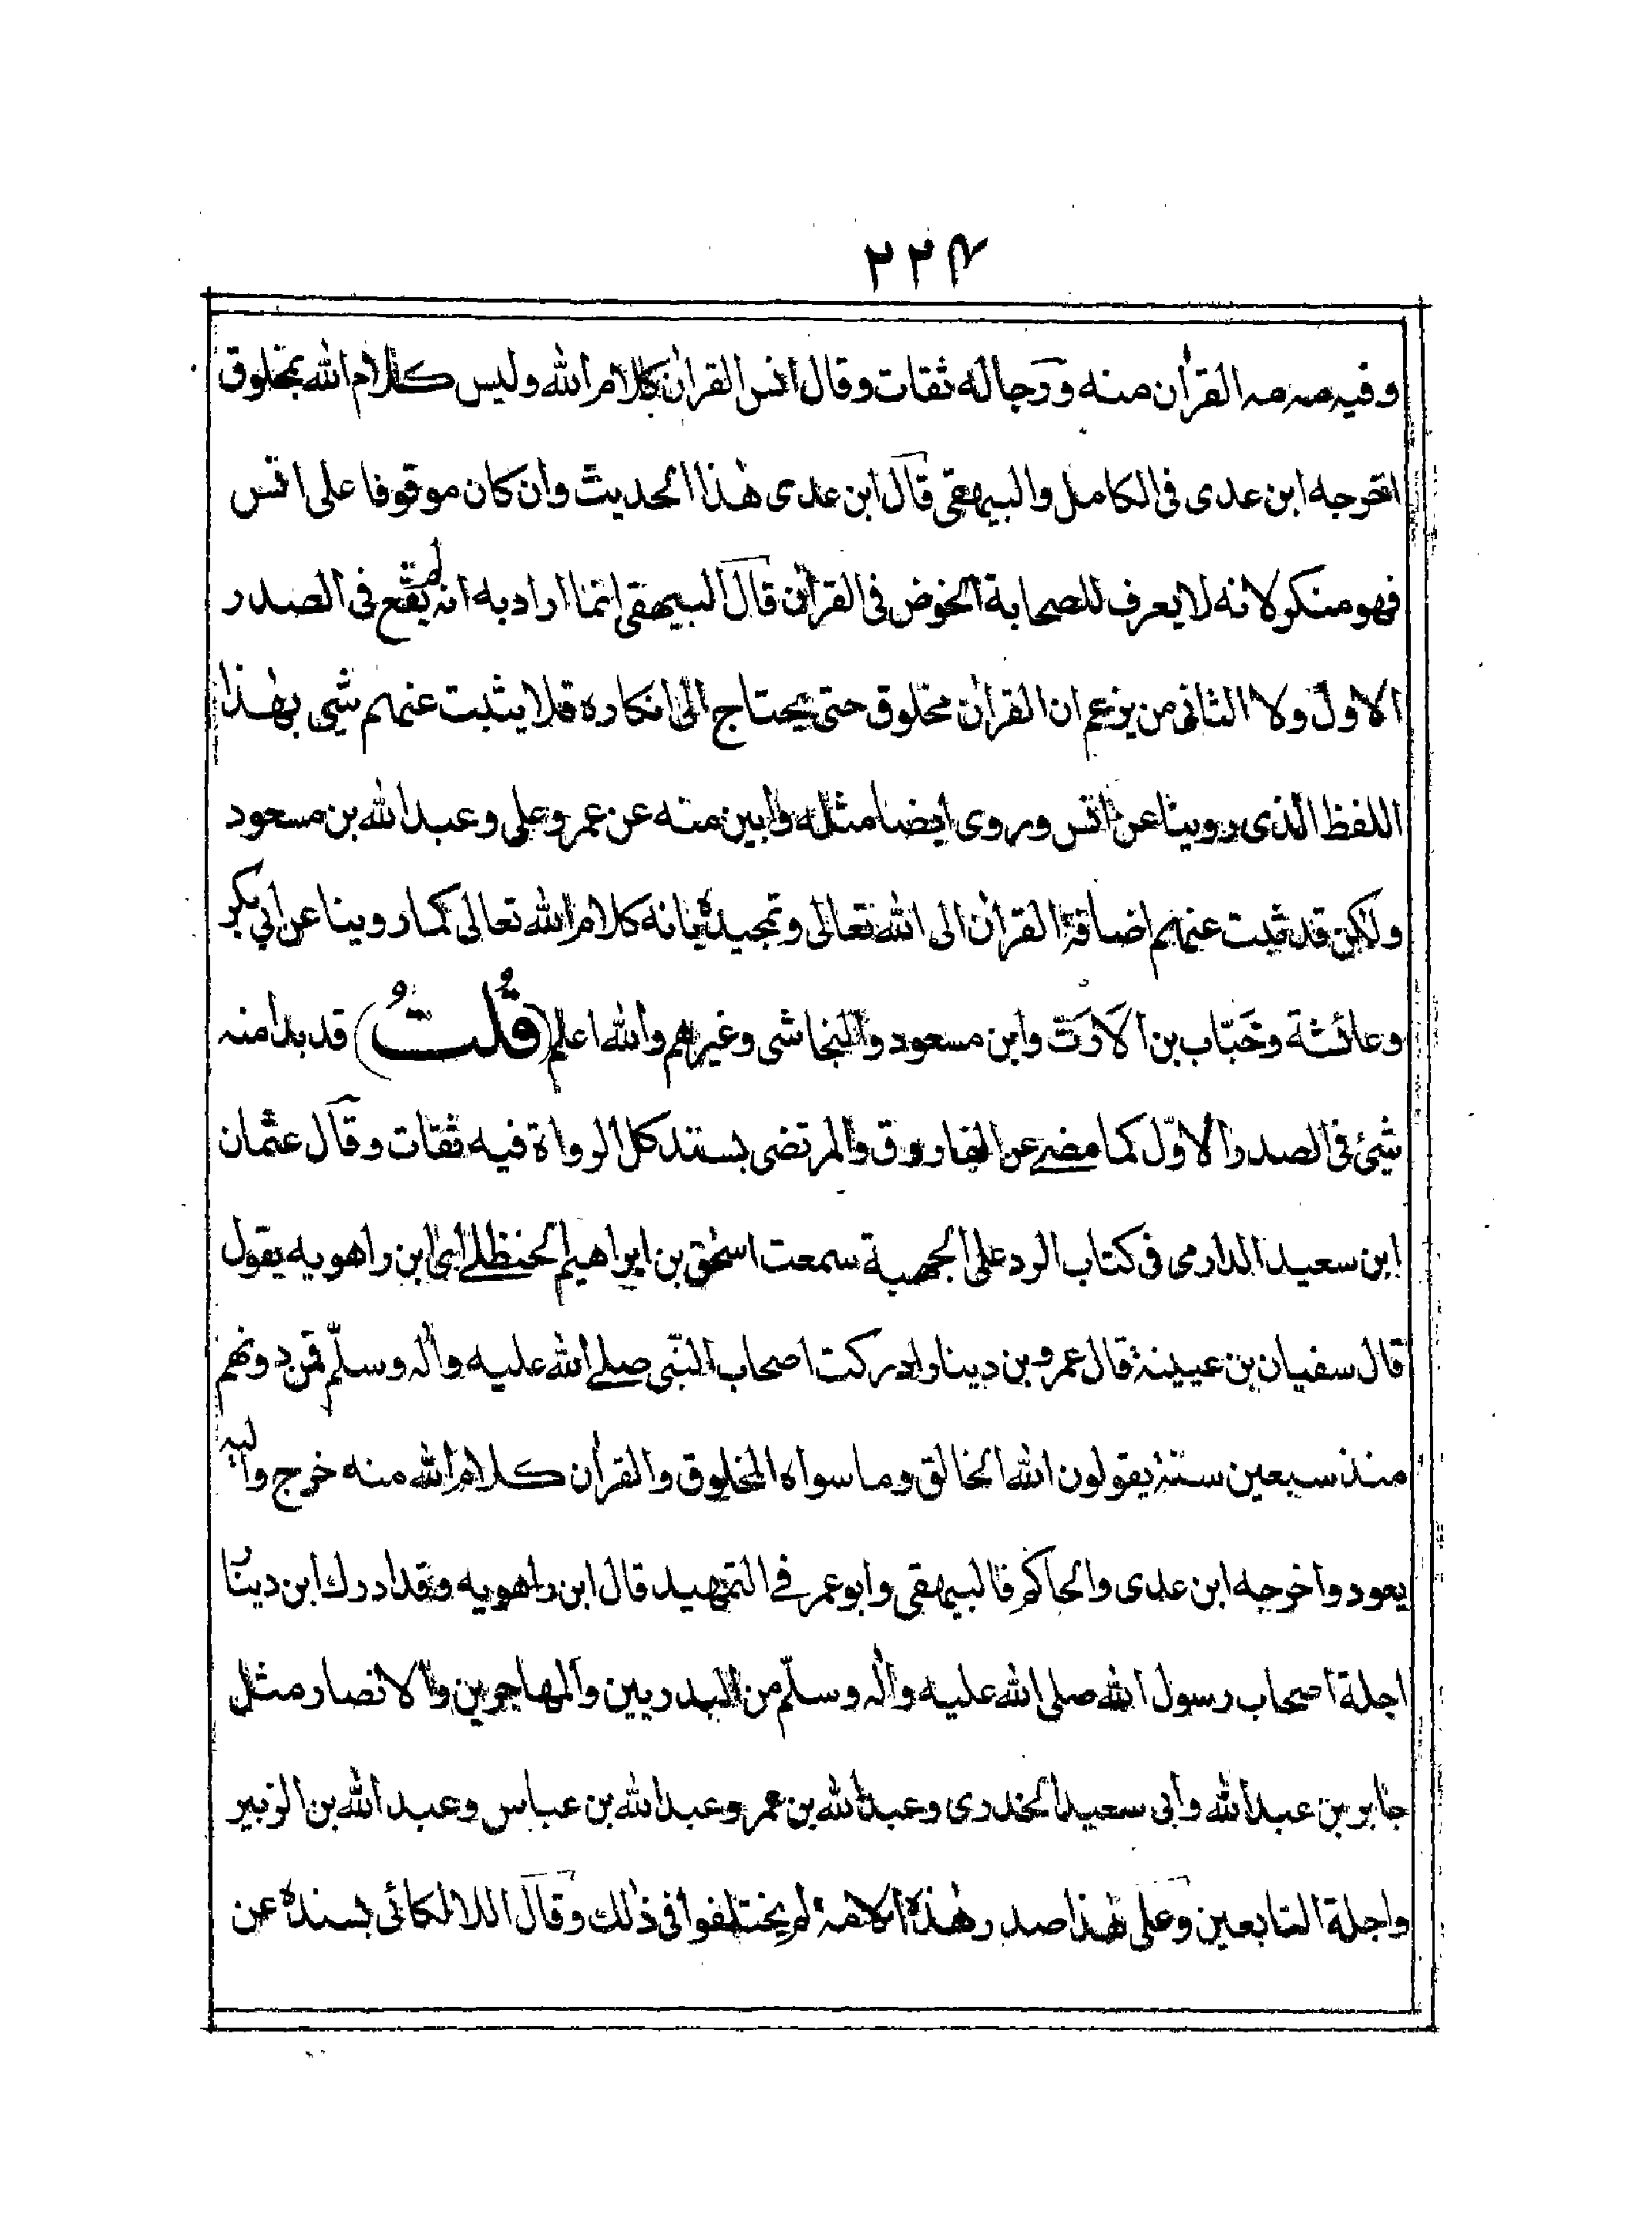 ٢٢٤
وفيه مه مه القرأن منه ورجاله ثقات وقال انس القرأن كلام الله وليس كلام الله بمخلوق
اخرجه ابن عدى فى الكامل والبيهقى قال ابن عدى هذا الحديث وان كان موقوفا على انس
فهو منكر لانه لا يعرف للصحابة الخوض فى القرأن قال البيهقى انما اراد به انه لم يقع فى الصدر
الاول ولا الثانى من يزعم ان القرأن مخلوق حتى يحتاج الى انكاره فلا يثبت عنهم شئ بهذا
اللفظ الذى روينا عن انس وروى ايضا مثله وابين منه عن عمر وعلى وعبد الله بن مسعود
ولكن قد ثبت عنهم اضافة القرأن الى الله تعالى وتمجيده بانه كلام الله تعالى كما روينا عن ابى بكر
وعائشة وخَبّاب بن الارت وابن مسعود والنجاشى وغيرهم والله اعلم (قُلتُ) قد بدا منه
شئ فى الصدر الاوّل كما مضے عن الفاروق والمرتضى بسند كل الرواة فيه ثقات وقال عثمان
ابن سعيد الدارمى فى كتاب الرد على الجهمية سمعت اسحق بن ابراهيم الحنظلے اى ابن راهويه يقول
قال سفيان بن عيينة قال عمرو بن دينار ادركت اصحاب النبّى صلے الله عليه وأله وسلّم فمن دونهم
منذ سبعين سنة يقولون الله الخالق وما سواه المخلوق والقرأن كلام الله منه خرج واليه
يعود واخرجه ابن عدى والحاكم فالبيهقى وابو عمر فے التمهيد قال ابن راهويه وقد ادرك ابن دينار
اجلة اصحاب رسول الله صلى الله عليه وأله وسلّم من البدريين والمهاجرين والانصار مثل
جابر بن عبد الله وابى سعيد الخدرى وعبد الله بن عمر وعبد الله بن عباس وعبد الله بن الزبير
واجلة التابعين وعلى هذا صدر هذه الامة لم يختلفوا فى ذلك وقال اللالكائى بسنده عن